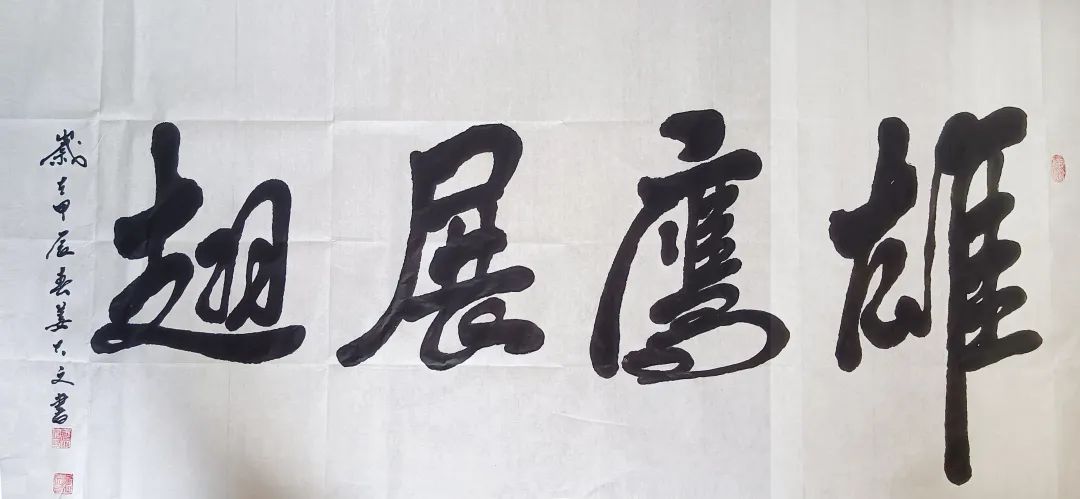 雄鹰展翅
歲在甲辰春姜大文書